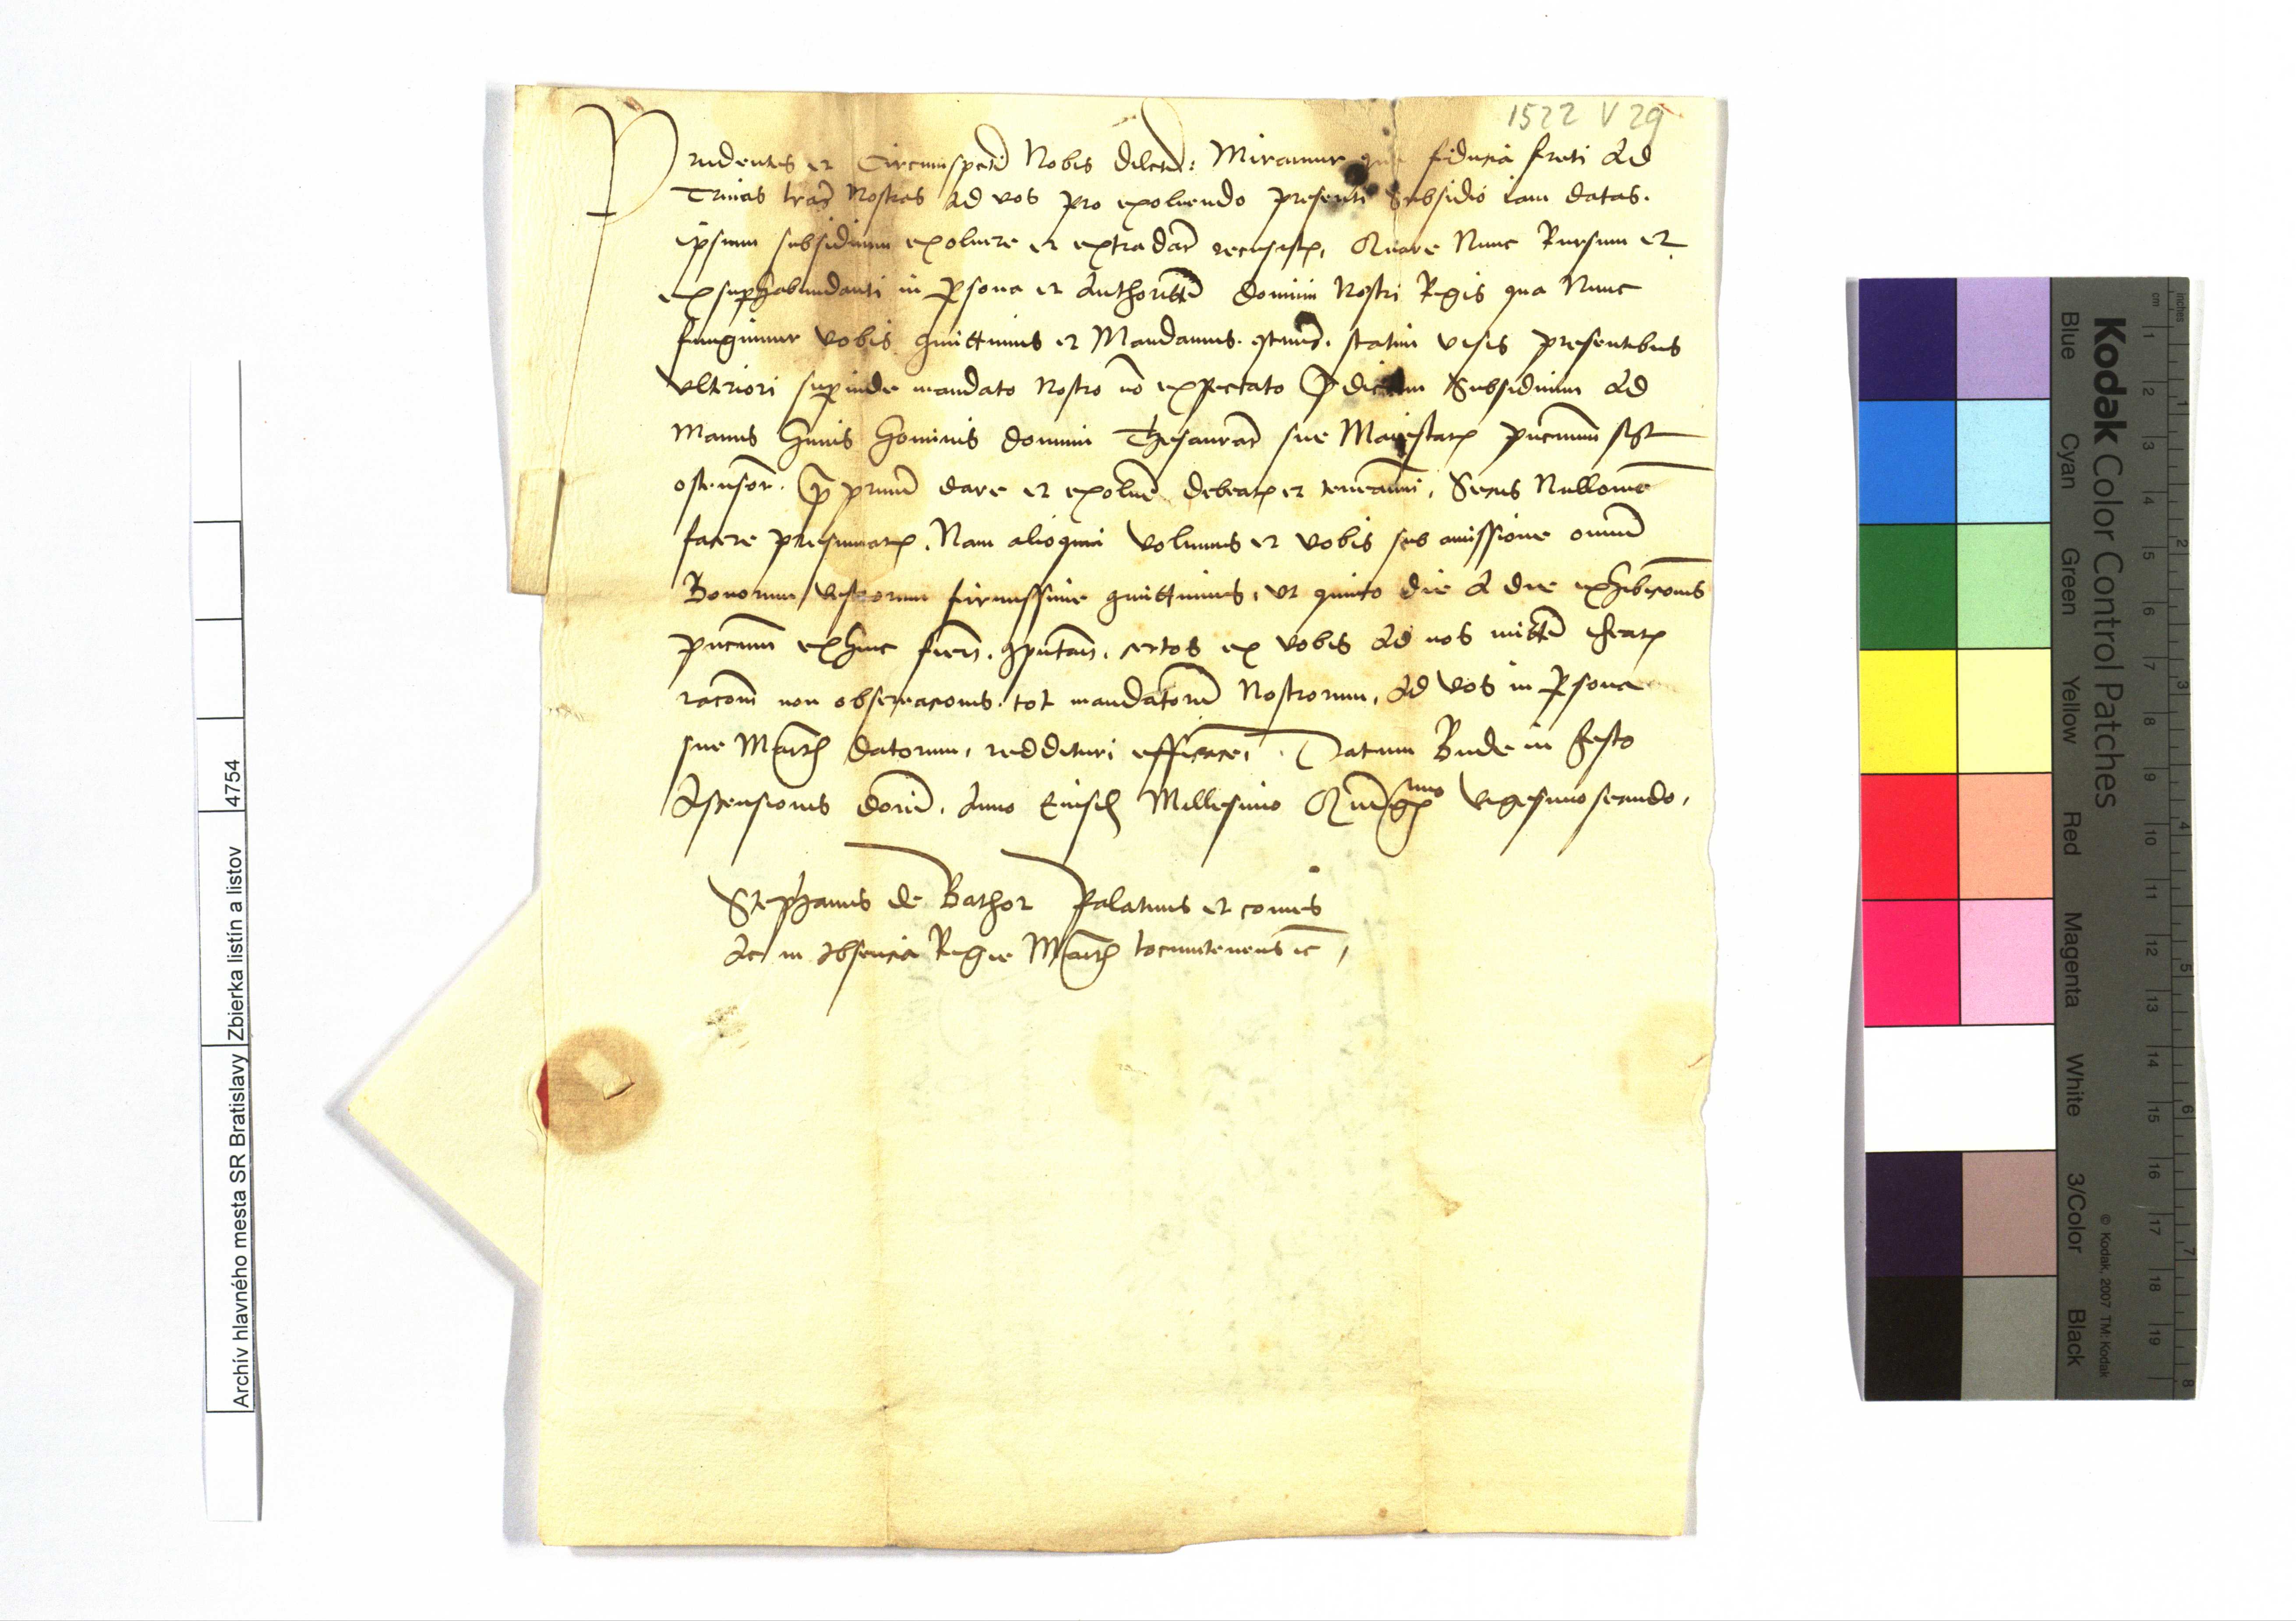 1522 V 29
Prudentes et Circumspecti Nobis dilecti: Miramur qua fiducia freti Ad
Trinas lras Nostras Ad vos pro exoluendo presenti Subsidio iam datas.
ipsum subsidium exoluere et extradare recusastis, Quare Nunc Rursum et
ex superhabundanti in Persona et Authoritate domini Nostri Regis qua Nunc
fungimur vobis committimus et Mandamus. statim visis presentibus
vlteriori superinde mandato Nostro no expectato Predictum Subsidium Ad
Manus huius hominis domini Thesaurarii sue Maiestatis pncium
ostensor. dare et exoluere debeatis et teneamini, Secus Nullomo
facere presumatis. Nam alioquin Volumus et vobis sub amissione omnium
Bonorum vestrorum firmissime committimus, vt quinto die A die exhibicionis
pncium exhinc fiend. computand. certos ex vobis Ad nos mittere debeatis
racom non obseruacionis tot mandatorum Nostrorum, Ad vos in Persona
sue Maiestatis datorum, reddituri efficacem. Datum Bude in festo
Ascensionis domini. Anno eiusdem Millesimo Quingentesimo vigesimosecundo,
Stephanus de Bathor Palatinus et comes
Ac in Absencia Regie Maiestatis locumtenens etc,
Archív hlavného mesta SR Bratislavy
Zbierka listín a listov
4754
Kodak Color Control Patches
Blue Cyan Green Yellow Red Magenta White 3/Color Black
© Kodak, 2007 TM: Kodak
inches 1 2 3 4 5 6 7 8
cm 1 2 3 4 5 6 7 8 9 10 11 12 13 14 15 16 17 18 19